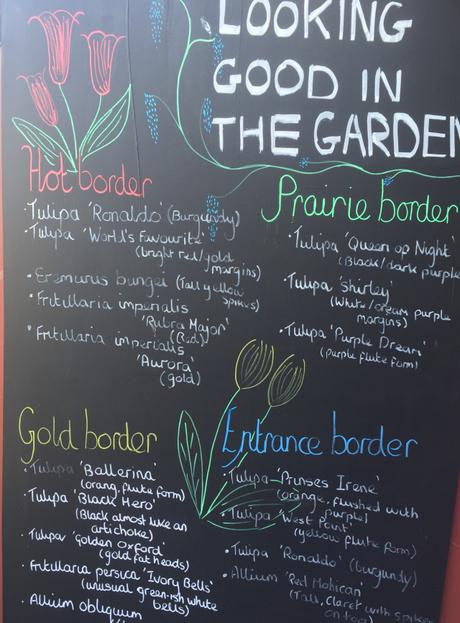 LOOKING
GOOD IN
THE GARDEN
Hot border
· Tulipa 'Ronaldo' (Burgundy)
· Tulipa 'World's Favourite'
(bright red/gold
margins)
· Eremurus bungei (Tall yellow
spikes)
· Fritillaria imperialis
'Rubra Major'
(Red)
· Fritillaria imperialis
'Aurora'
(gold)
Prairie border
· Tulipa 'Queen op Night'
(Black/dark purple
· Tulipa Shirley'
(White/cream purple
margins)
· Tulipa 'Purple Dream'
(purple flute form)
Gold border
· Tulipa 'Ballerina'
(orang, flute form)
· Tulipa 'Black Hero'
(Black almost like an
artichoke)
· Tulipa 'Golden Oxford'
(gold fat heads)
· Fritillaria persica 'Ivory Bells'
(unusual green-ish white
bells)
· Allium obliquum
Entrance border
· Tulipa 'Prinses Irene'
(orange, flushed with
purple)
· Tulipa 'West Point'
(yellow flute form)
· Tulipa 'Ronaldo' (burgundy)
· Allium 'Red Mohican'
(Tall, Claret with spikes
on top)